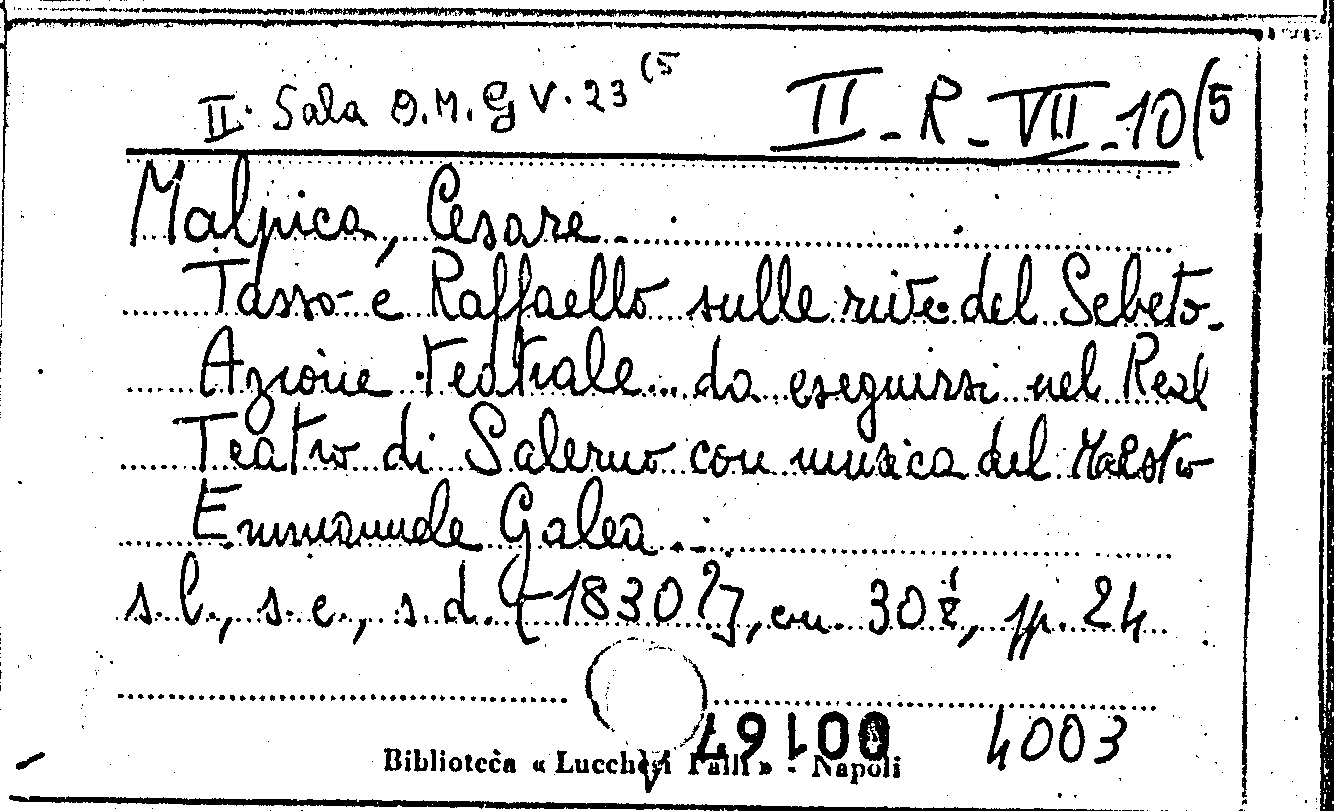 II. Sala O.M. G V. 23 (5
II - R - VII - 10 (5
Malpica, Cesare.
Tasso e Raffaello sulle rive del Sebeto.
Azione teatrale... da eseguirsi nel Real
Teatro di Salerno con musica del Maestro
Emmanuele Galea.
s.l., s.e., s.d. [1830?], cm. 30, pp. 24
00167 4003
Biblioteca « Lucchesi Palli » - Napoli